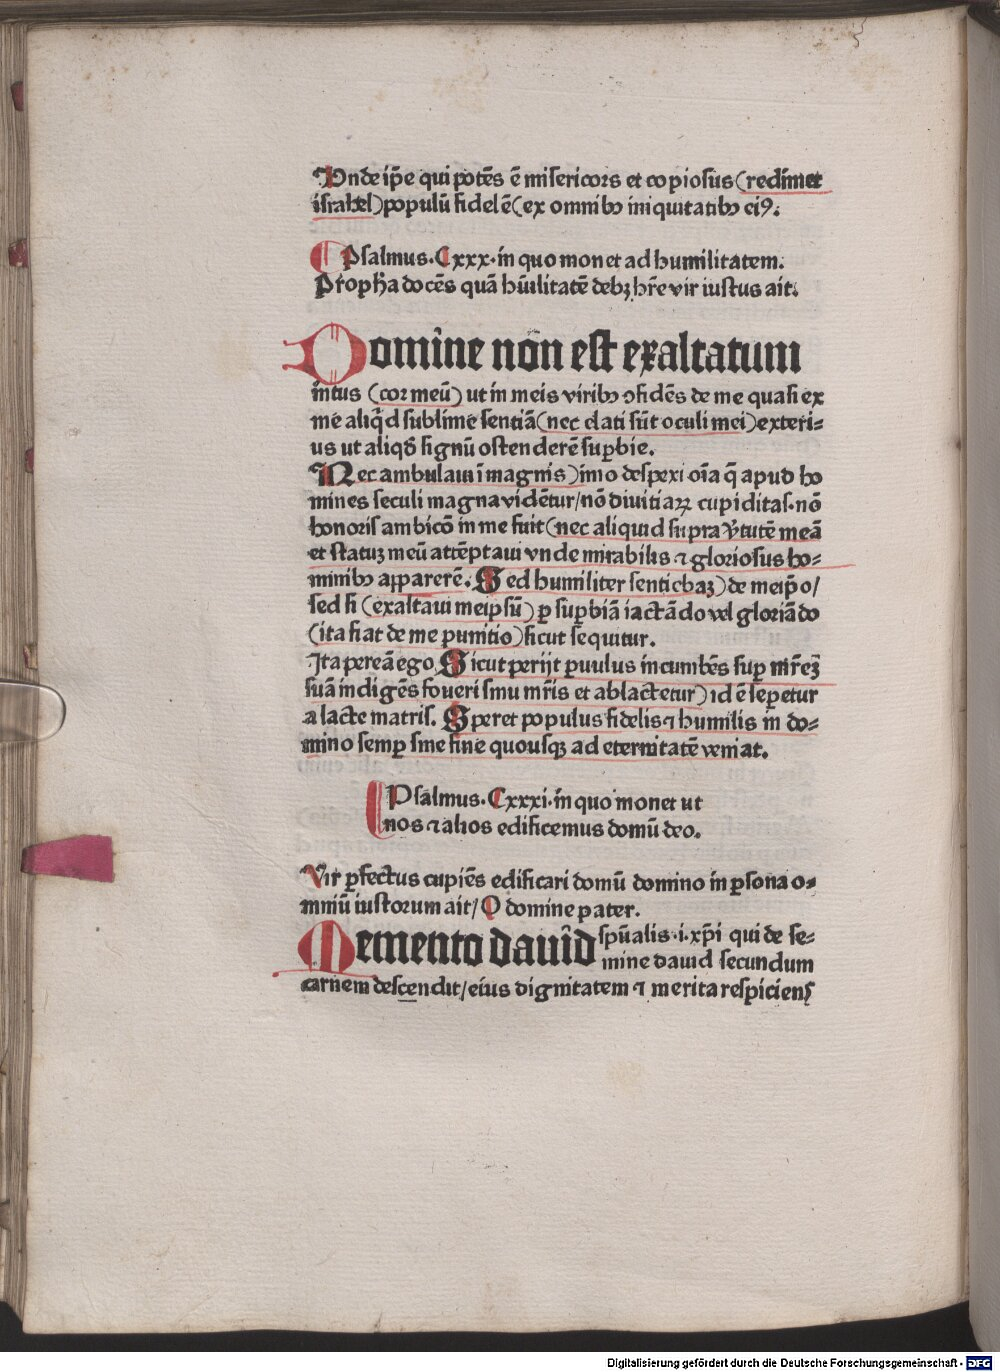 Vnde ip̄e qui potēs ē misericors et copiosus (redimet
israhel) populū fidelē (ex omnibꝰ iniquitatibꝰ eiꝰ.
Psalmus. Cxxx. in quo monet ad humilitatem.
Propha docēs quā hūilitatē debꝫ hr̄e vir iustus ait.
Domīne nōn est exaltatum
intus (cor meū) ut in meis viribꝰ ꝯfidēs de me quasi ex
me aliq̄d sublime sentiā (nec elati sūt oculi mei) exteri=
us ut aliqd̄ signū ostenderē suꝑbie.
Nec ambulaui ī magnis) imo despexi oīa q̄ apud ho
mines seculi magna vidētur/ nō diuitiaꝝ cupiditas. nō
honoris ambicō in me fuit (nec aliquid supra v̄tutē meā
et statuꝫ meū attēptaui vnde mirabilis ⁊ gloriosus ho=
minibꝰ apparerē. Sed humiliter sentiebaꝫ) de meip̄o/
sed si (exaltaui meip̄sū) ꝑ suꝑbiā iactādo vel gloriādo
(ita fiat de me punitio) sicut sequitur.
Ita pereā ego Sicut perijt ꝑuulus incumbēs suꝑ mr̄eꝫ
suā indigēs foueri sinu mr̄is et ablactetur) id ē seꝑetur
a lacte matris. Speret populus fidelis ⁊ humilis in do=
mino semꝑ sine fine quousqꝫ ad eternitatē veniat.
Psalmus. Cxxxi. in quo monet ut
nos ⁊ alios edificemus domū deo.
Vir ꝑfectus cupiēs edificari domū domino in ꝑsona o=
mniū iustorum ait/ O domine pater.
Memento dauīd spūalis .i. xp̄i qui de se=
mine dauid secundum
carnem descendit/ eius dignitatem ⁊ merita respiciens
Digitalisierung gefördert durch die Deutsche Forschungsgemeinschaft - DFG